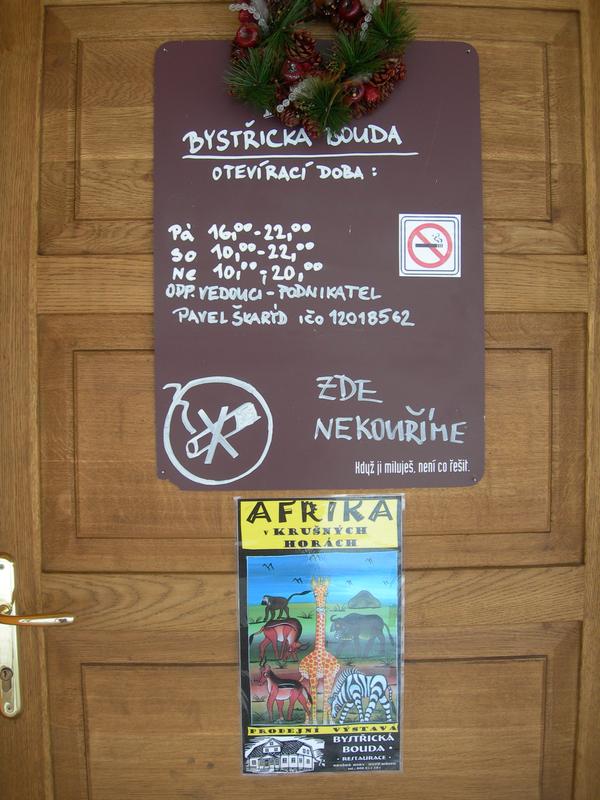 BYSTŘICKÁ BOUDA
OTEVÍRACÍ DOBA :
Pá 16,00-22,00
So 10,00-22,00
Ne 10,00-20,00
ODP. VEDOUCÍ - PODNIKATEL
PAVEL ŠKARÝD IČO 12018562
ZDE
NEKOUŘÍME
Když ji miluješ, není co řešit.
AFRIKA
V KRUŠNÝCH
HORÁCH
PRODEJNÍ VÝSTAVA
BYSTŘICKÁ
BOUDA
• RESTAURACE •